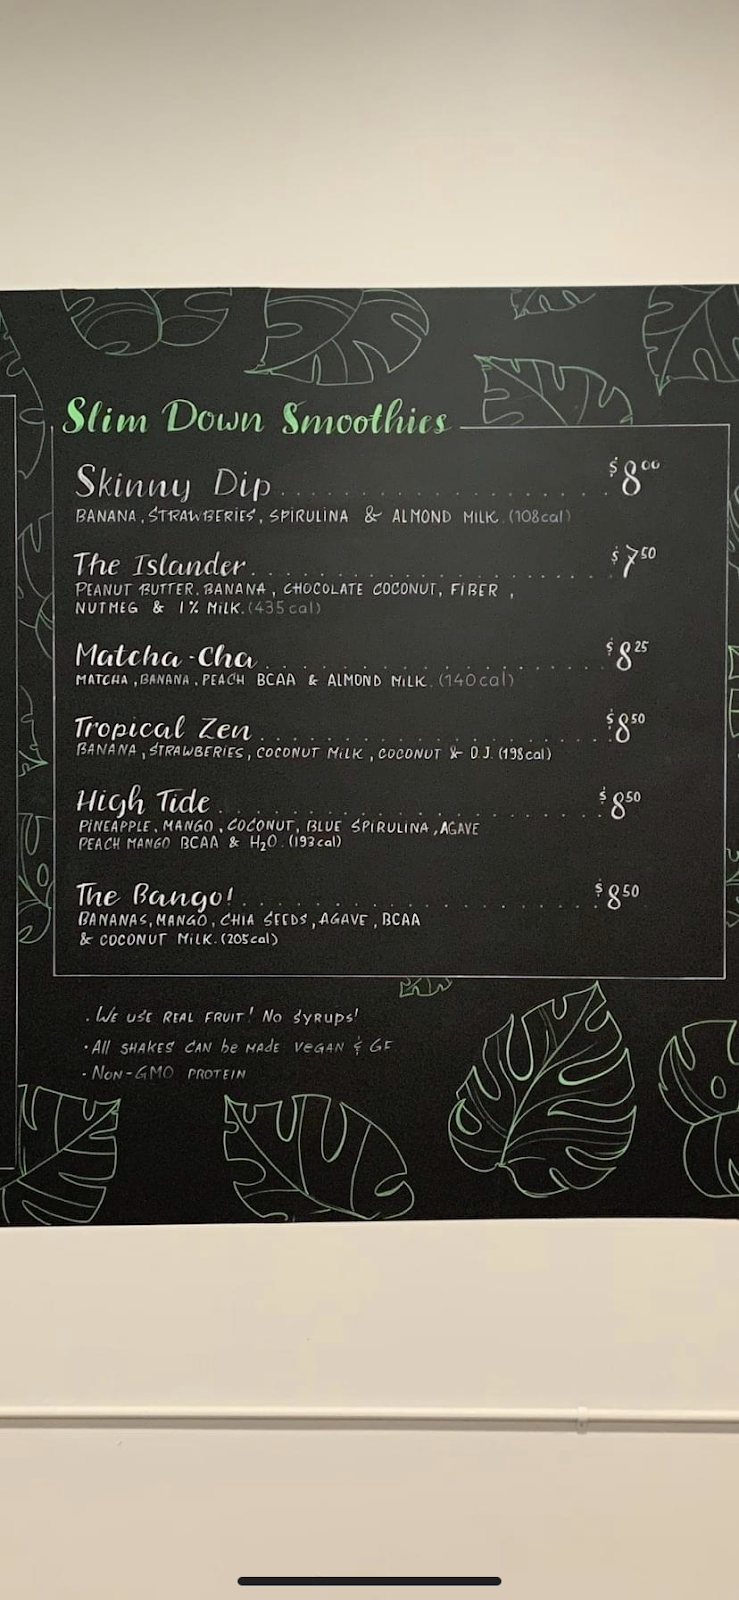 Slim Down Smoothies
Skinny Dip $8.00
BANANA, STRAWBERIES, SPIRULINA & ALMOND MILK. (108cal)
The Islander $7.50
PEANUT BUTTER, BANANA, CHOCOLATE COCONUT, FIBER,
NUTMEG & 1% MILK. (435 cal)
Matcha-Cha $8.25
MATCHA, BANANA, PEACH BCAA & ALMOND MILK. (140cal)
Tropical Zen $8.50
BANANA, STRAWBERIES, COCONUT MILK, COCONUT & O.J. (198cal)
High Tide $8.50
PINEAPPLE, MANGO, COCONUT, BLUE SPIRULINA, AGAVE
PEACH MANGO BCAA & H₂O. (193cal)
The Bango! $8.50
BANANAS, MANGO, CHIA SEEDS, AGAVE, BCAA
& COCONUT MILK. (205cal)
· WE USE REAL FRUIT! NO SYRUPS!
· All SHAKES CAN be MADE VEGAN & GF
· NON-GMO PROTEIN